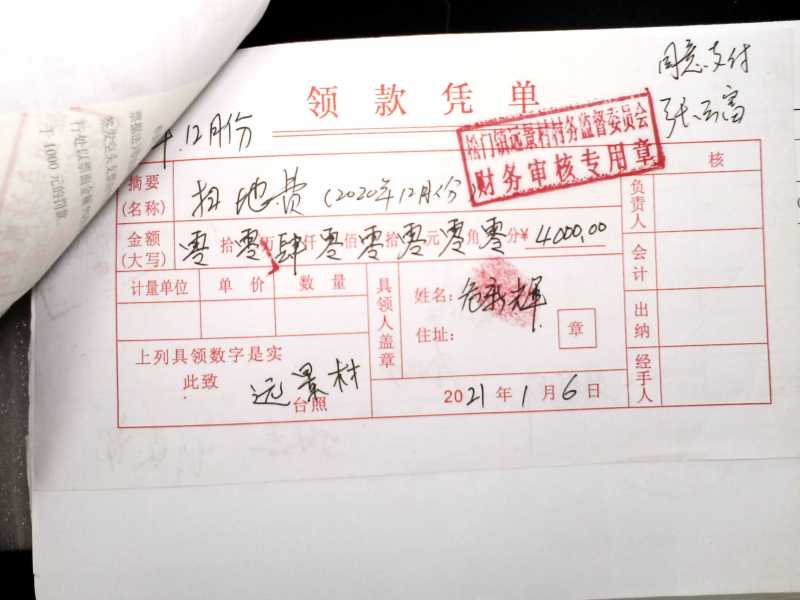 同意支付
领款凭单
年.12月份
松门镇远景村村务监督委员会
财务审核专用章
摘要(名称) 扫地费(2020年12月份) 核
金额(大写) 零拾零万肆仟零佰零拾零元零角零分¥4000.00
负责人
会计
出纳
经手人
计量单位 单价 数量
具领人盖章
姓名: 危新辉
住址: 章
上列具领数字是实
此致
远景村
台照
2021年1月6日
行处以票面金额
于1000元的罚款